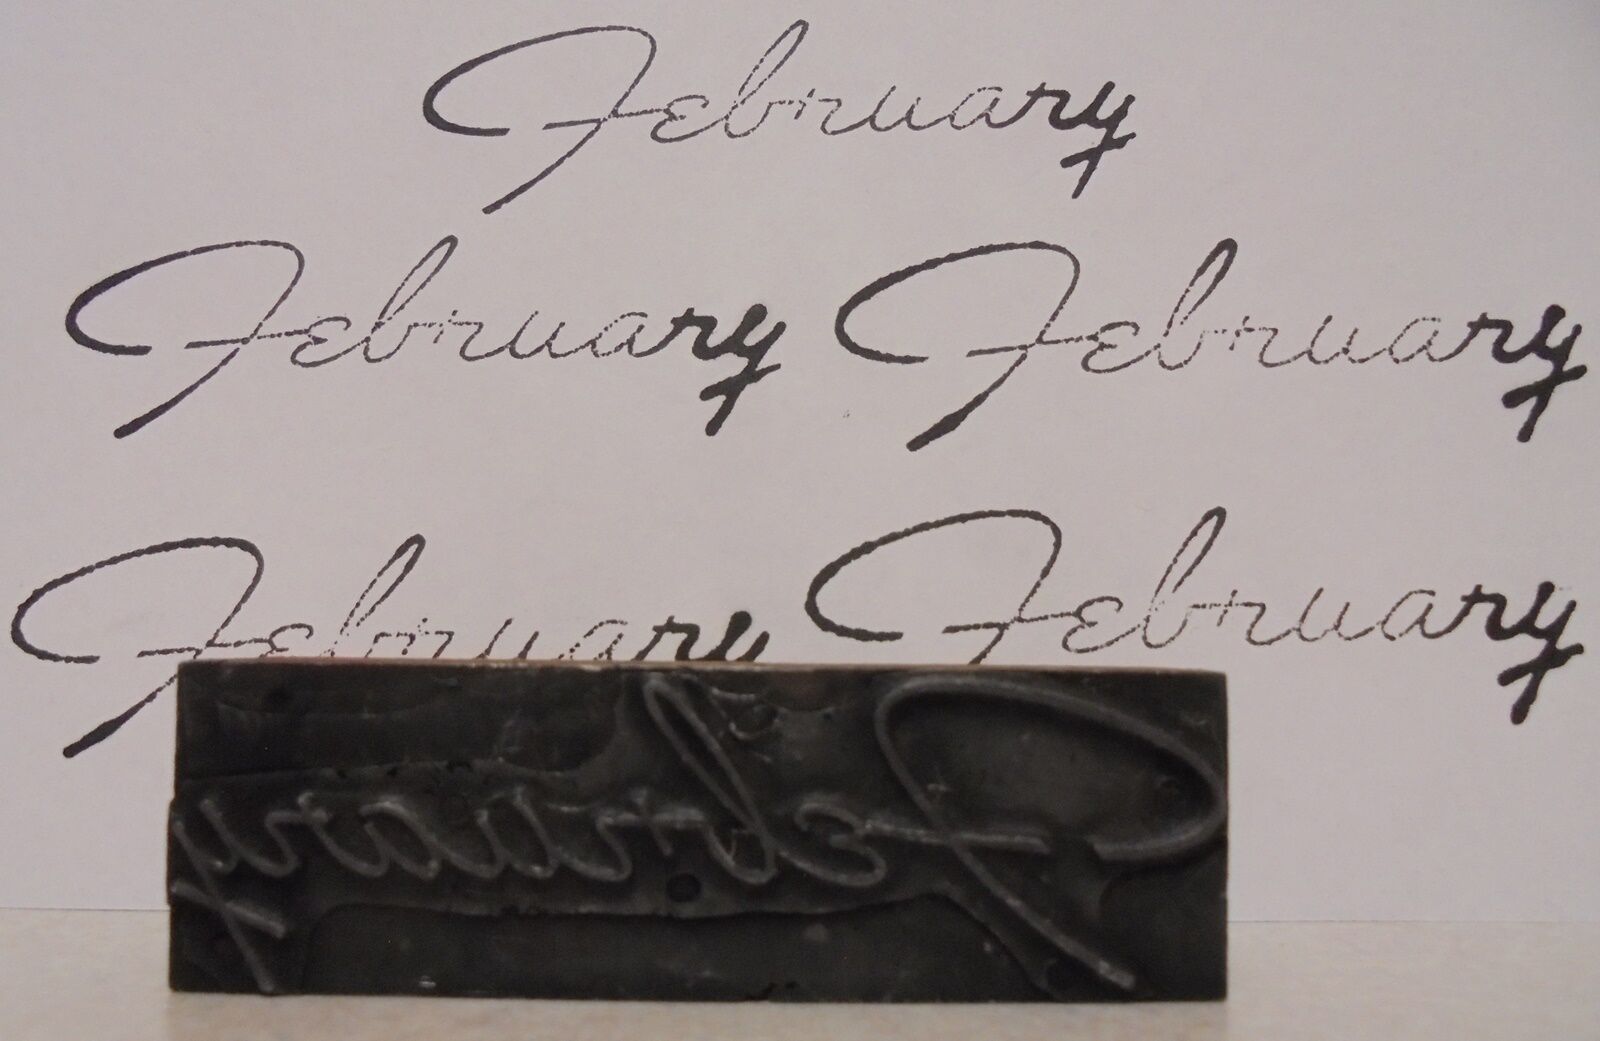 February
February February
February February
February